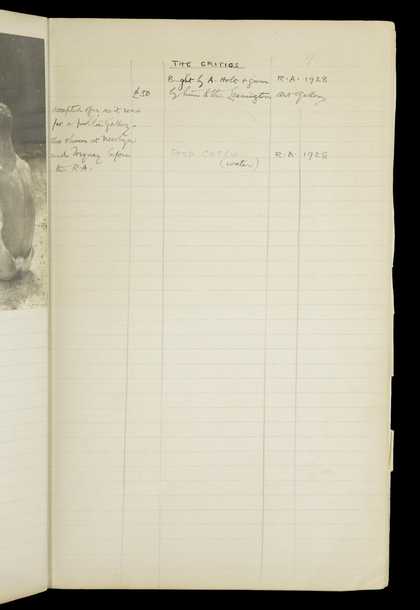 THE CRITICS
Bought by A. Holt & given R.A. 1928
£50 by him to the Leamington Art Gallery
accepted offer as it was
for a public Gallery.
Also shown at Newlyn
and Torquay before
the R.A.
R.A. 1928
(water)